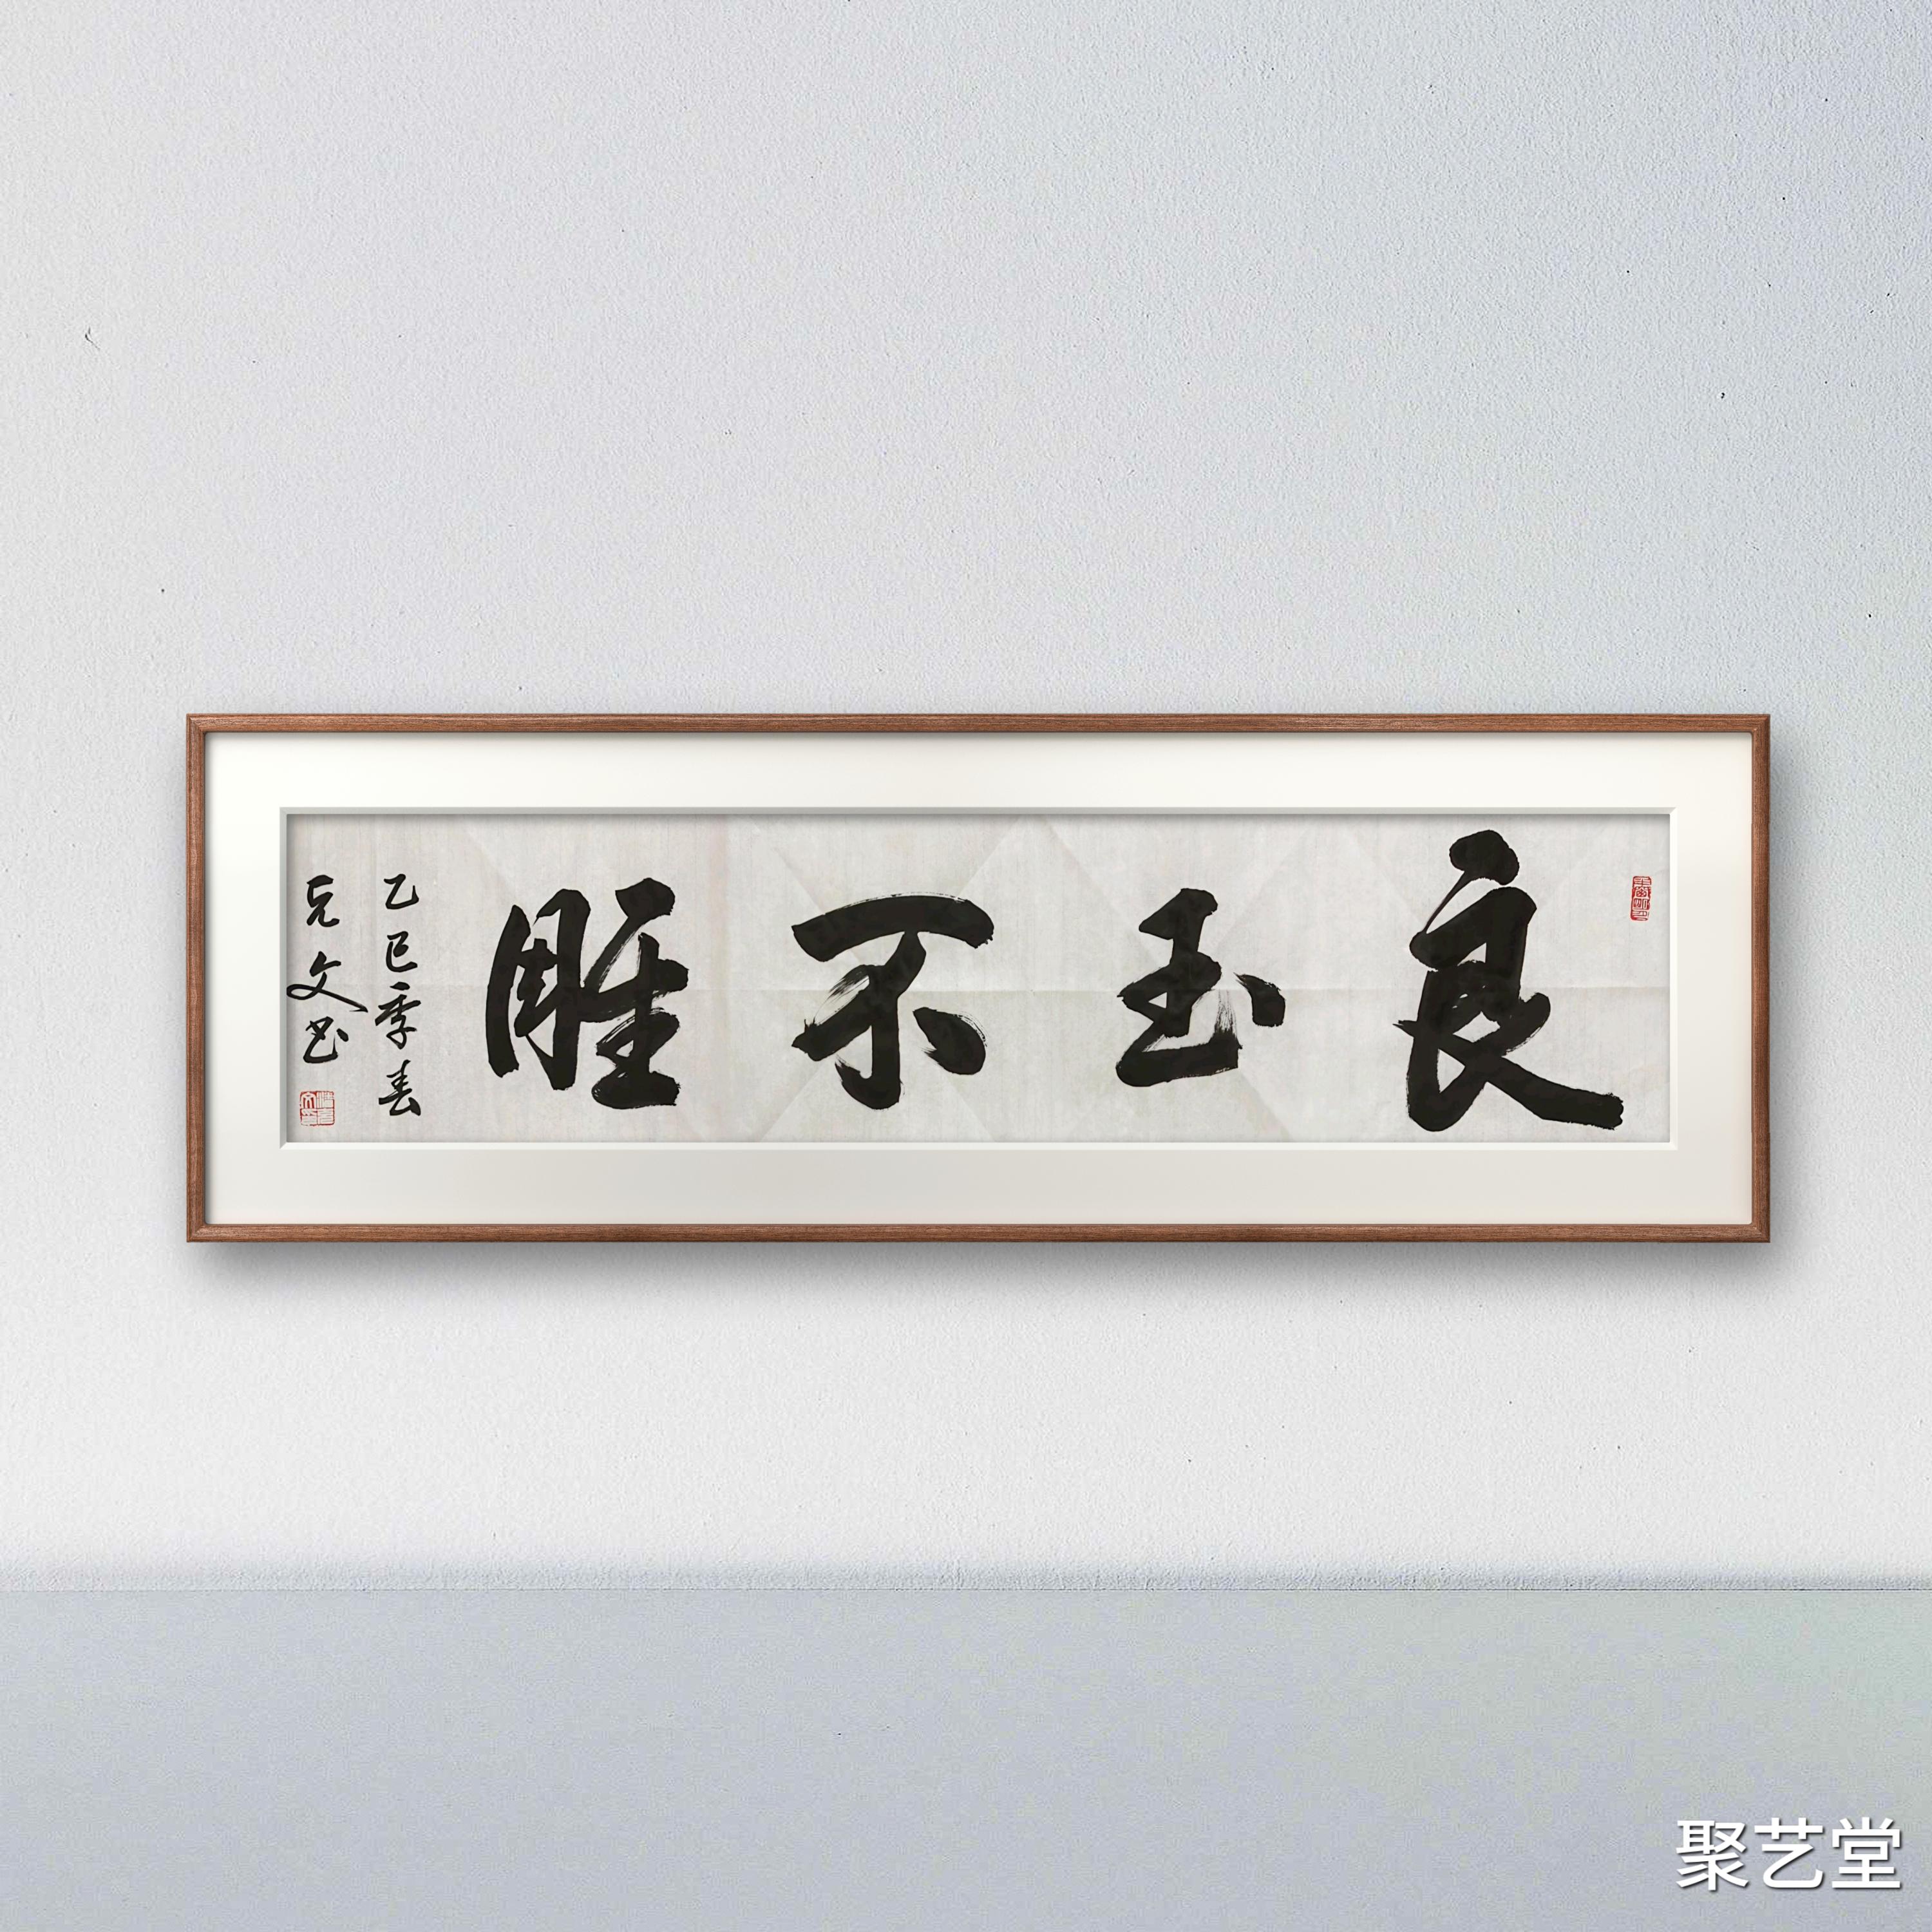 良玉不雕
乙巳季春
克文书
聚艺堂